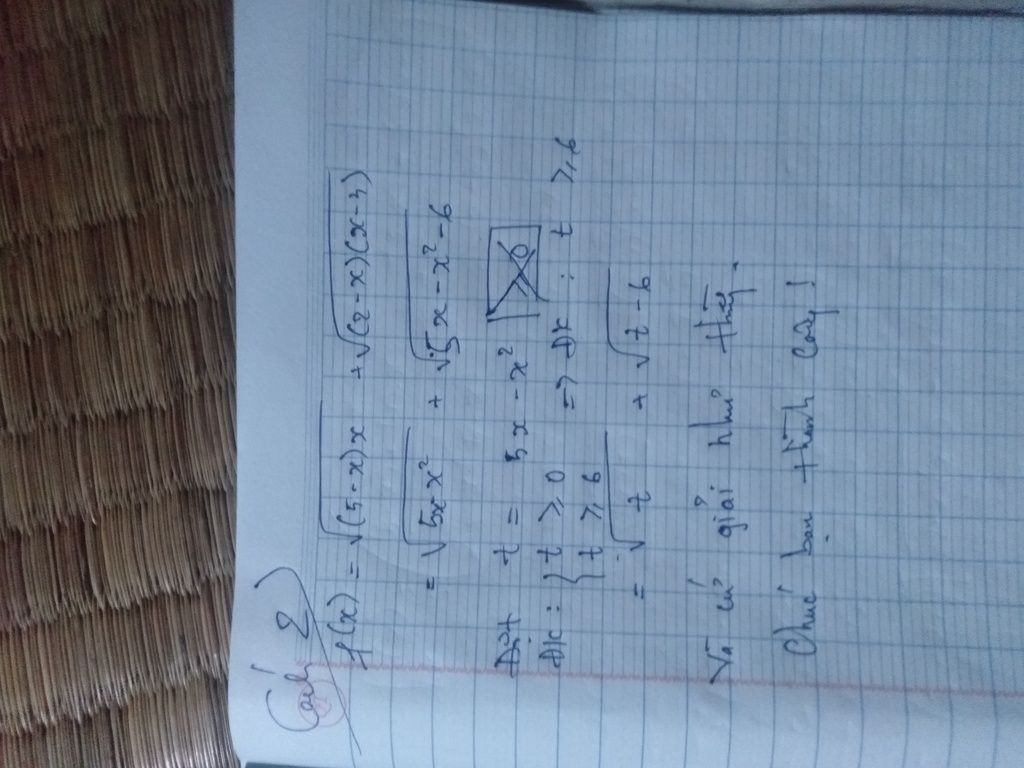 Cách 2
f(x) = √(5-x)x + √(2-x)(x-3)
= √5x-x² + √5x-x²-6
Đặt t = 5x-x²
ĐK: { t ≥ 0
t ≥ 6 => ĐK: t ≥ 6
= √t + √t-6
Và cứ giải như thầy.
Chúc bạn thành công!